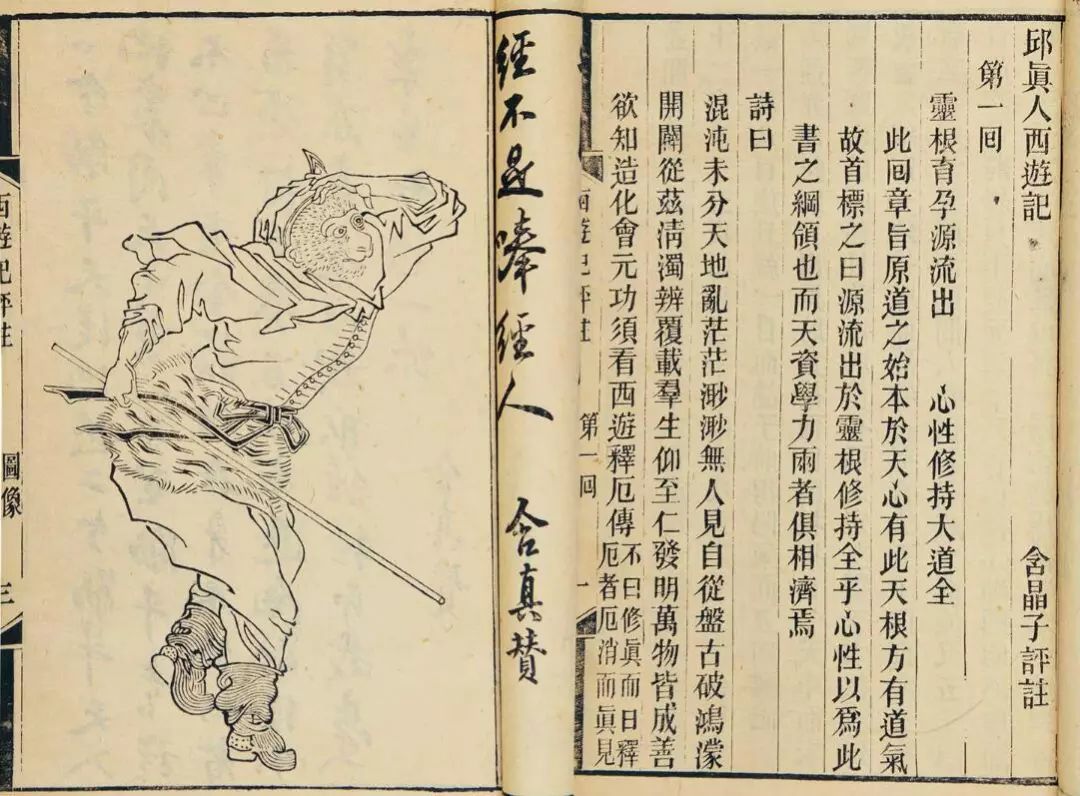 邱眞人西遊記　含晶子評註
第一囘
靈根育孕源流出　心性修持大道全
此囘章旨原道之始本於天心有此天根方有道氣
故首標之曰源流出於靈根修持全乎心性以爲此
書之綱領也而天資學力兩者俱相濟焉
詩曰
混沌未分天地亂茫茫渺渺無人見自從盤古破鴻濛
開闢從茲淸濁辨覆載羣生仰至仁發明萬物皆成善
欲知造化會元功須看西遊釋厄傳
不曰修眞而曰釋
厄者厄消而眞見
西遊記評註　第一囘　一
經不是唪經人
含真贊
西遊記評註　圖像　三